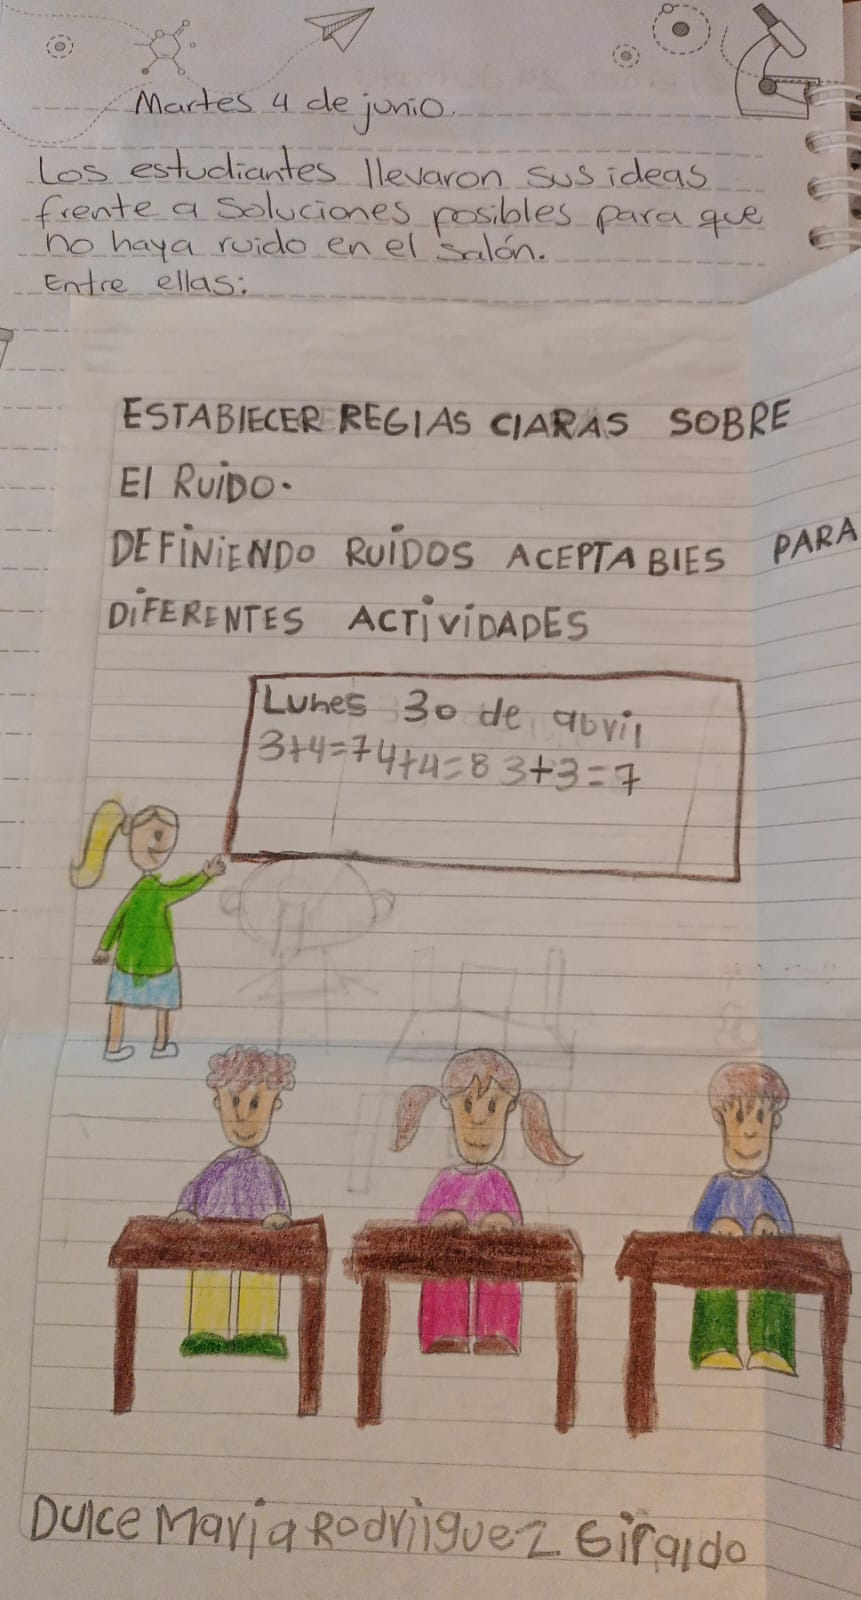 Martes 4 de junio.
Los estudiantes llevaron sus ideas
frente a soluciones posibles para que
no haya ruido en el salón.
Entre ellas:
ESTABIECER REGIAS CIARAS SOBRE
EI RUIDO.
DEFINIENDO RUIDOS ACEPTABIES PARA
DIFERENTES ACTIVIDADES
Lunes 30 de abril
3+4=7 4+4=8 3+3=7
Dulce Maria Rodriiguez Giraldo